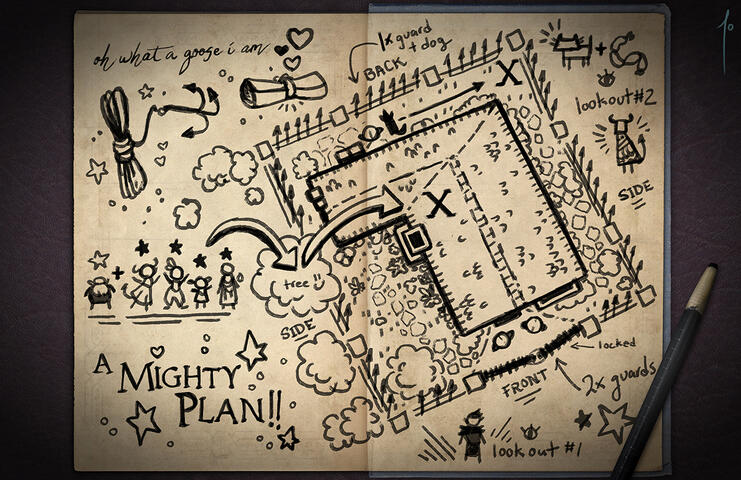 oh what a goose i am
1x guard
+ dog
BACK
X
+
lookout #2
SIDE
X
+
tree
SIDE
A MIGHTY
PLAN!!
locked
FRONT
2x guards
lookout #1